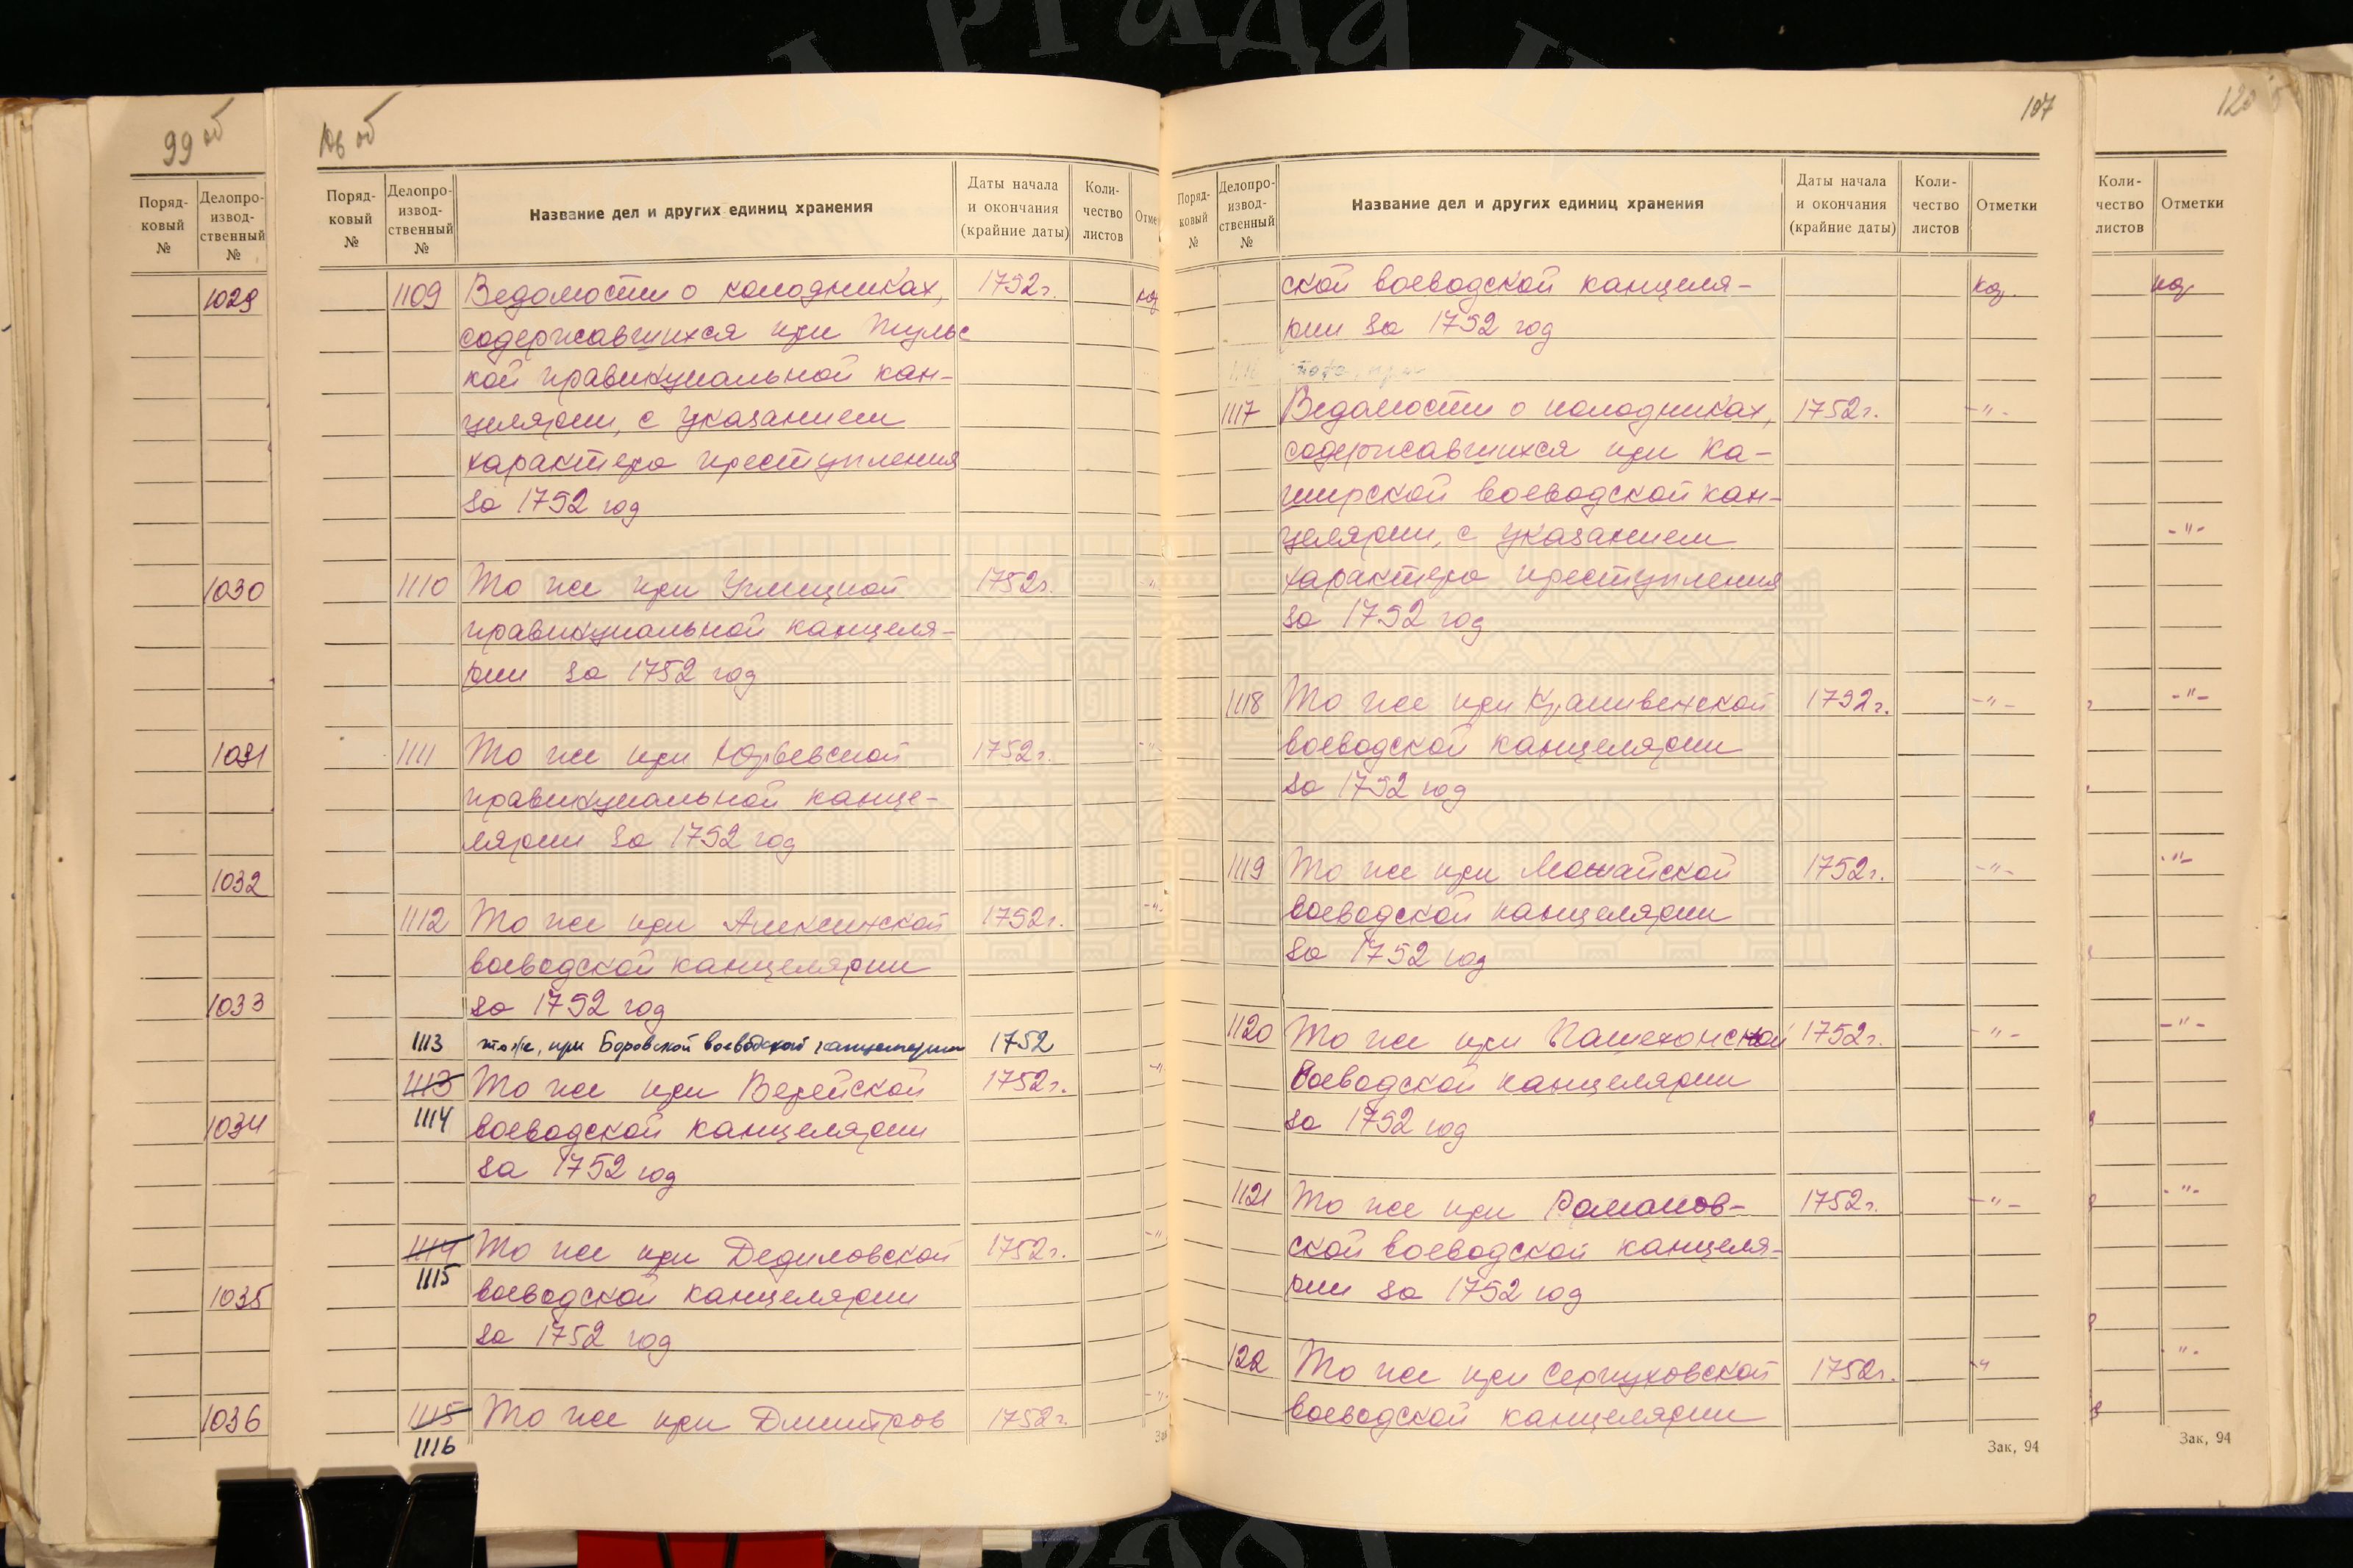 99 об
Поряд-
ковый
№
Делопро-
извод-
ственный
№
1029
1030
1031
1032
1033
1034
1035
1036
106 об
Поряд-
ковый
№
Делопро-
извод-
ственный
№
Название дел и других единиц хранения
Даты начала
и окончания
(крайние даты)
Коли-
чество
листов
1109 Ведомости о колодниках, 1752г.
содержавшихся при Тульс
кой провинциальной кан-
целярии, с указанием
характера преступления
за 1752 год
1110 То же при Углицкой 1752г. "
провинциальной канцеля-
рии за 1752 год
1111 То же при Юрьевской 1752г. -"-
провинциальной канце-
лярии за 1752 год
1112 То же при Алексинской 1752г. -"-
воеводской канцелярии
за 1752 год
1113 то же, при Боровской воеводской канцелярии 1752
1113 То же при Верейской 1752г. -"
1114 воеводской канцелярии
за 1752 год
1114 То же при Дедиловской 1752г. -"
1115 воеводской канцелярии
за 1752 год
1115 То же при Дмитров 1752г. -"
1116
107
Поряд-
ковый
№
Делопро-
извод-
ственный
№
Название дел и других единиц хранения
Даты начала
и окончания
(крайние даты)
Коли-
чество
листов
Отметки
ской воеводской канцеля-
рии за 1752 год
1116 то же, при
1117 Ведомости о колодниках, 1752г. -"-
содержавшихся при Ка-
ширской воеводской кан-
целярии, с указанием
характера преступления
за 1752 год
1118 То же при Крапивенской 1752г. -"-
воеводской канцелярии
за 1752 год
1119 То же при Можайской 1752г. -"-
воеводской канцелярии
за 1752 год
1120 То же при Пошехонской 1752г. -"-
воеводской канцелярии
за 1752 год
1121 То же при Романов- 1752г. -"-
ской воеводской канцеля-
рии за 1752 год
122 То же при Серпуховской 1752г. -"
воеводской канцелярии
Зак, 94
120
Коли-
чество
листов
Отметки
-"-
-"-
-"-
-"-
-"-
-"-
Зак, 94